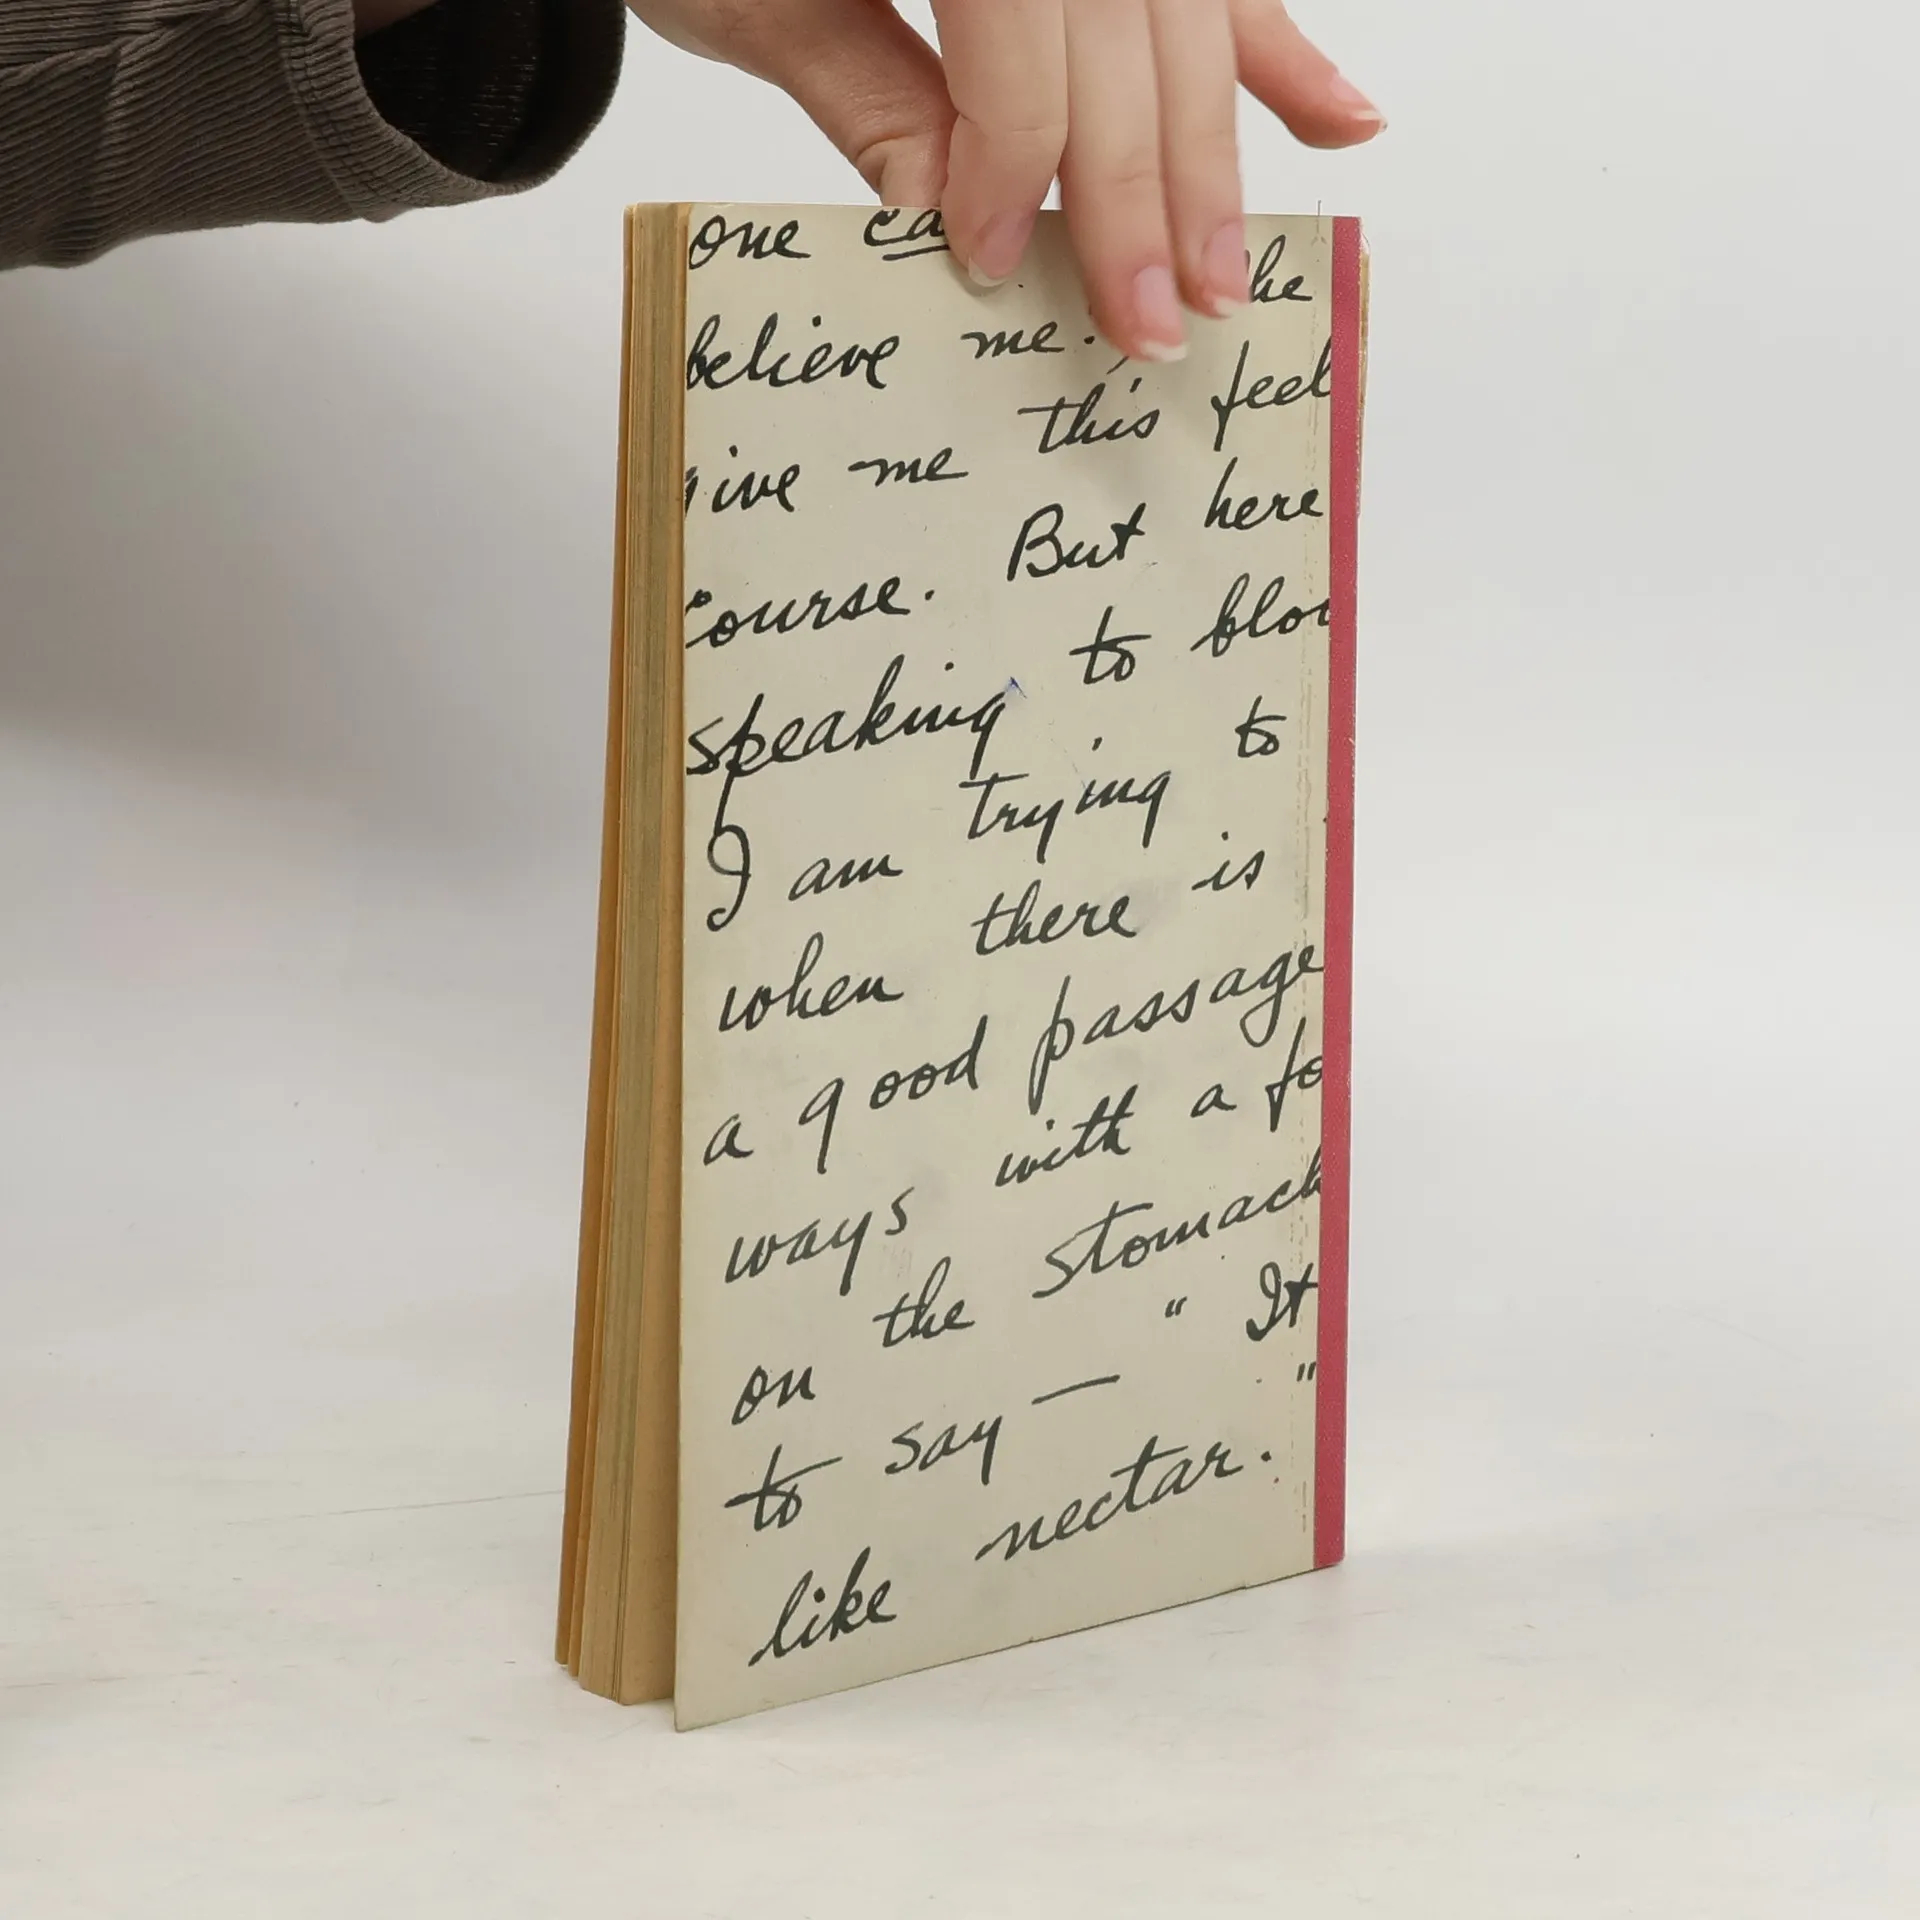 one ca
believe me. he
ive me this feel
ourse. But here
speaking to bloo
I am trying to
when there is
a good passage
ways with a fo
on the stomach
to say — " It
like nectar. "